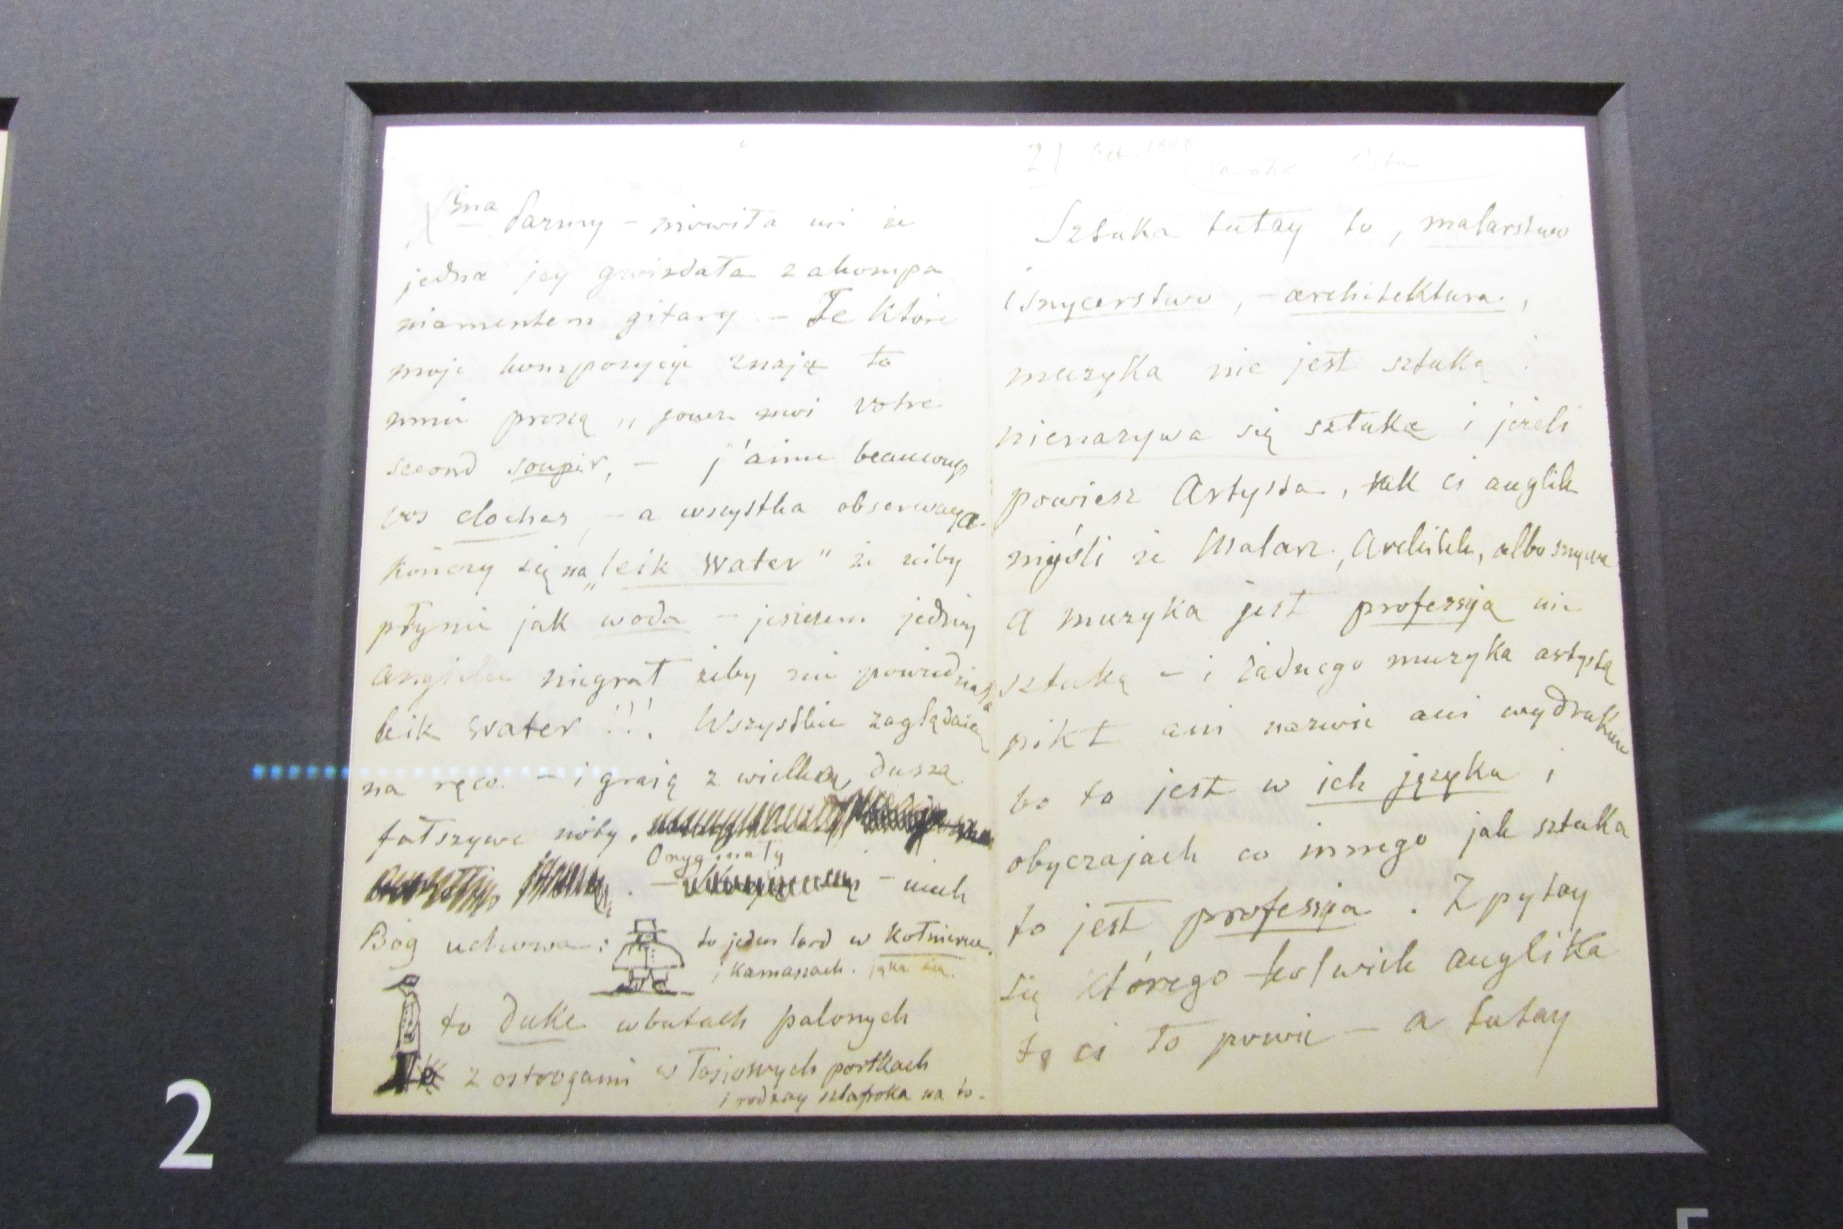 Parmy – mowiła mi że
jedna jej gwizdała z akompa
niamentem gitary. – Te które
moje kompozycje znają to
mnie proszą „jouez moi votre
second soupir, – j'aime beaucoup
vos cloches, – a wszystka obserwacya
kończy się na „leik water" że niby
płynie jak woda – jeszczem jedney
Angielce niegrał żeby nie powiedziała
leik water!!! Wszystkie zaglądają
na ręce. – i grają z wielką duszą
fałszywe nóty.
Oryginały
– niech
Bóg uchowa:
to jeden lord w kołnierzu
i kamaszach.
to Duke w butach palonych
z ostrogami w łosiowych portkach
i rodzay szlafroka na to.
21 Oct. 1848
Sztuka tutay to, malarstwo
i snycerstwo, – architektura,
muzyka nie jest sztuką
nienazywa się sztuką i jeżeli
powiesz Artysta, tak ci anglik
myśli że Malarz, Architek, albo snycerz
A muzyka jest professyą nie
sztuką – i żadnego muzyka artystą
nikt ani nazwie ani wydrukuje
bo to jest w ich języku i
obyczajach co innego jak sztuka
to jest professya. Zpytay
się którego kolwiek anglika
to ci to powie – a tutay
2